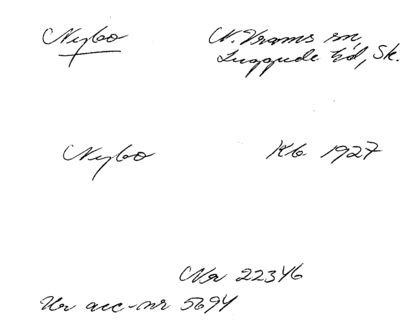 Nybo N. Vrams sn,
Luggude hd, Sk.
Nybo Kb 1927
Nr 22346
Ur acc-nr 5694